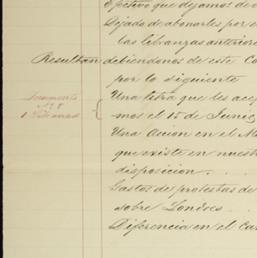 Efectivo que dejamos de
Dejado de abonarles por e
las libranzas anteriore
Resultan debiendonos de este Ca
por lo siguiente
Una letra que les ace
Documento
Nº 8
mos el 15 de Junio
Una Accion en el M
que existe en nuest
disposicion . . . .
Gastos de protestas de
sobre Londres . . .
Diferencia en el Ca